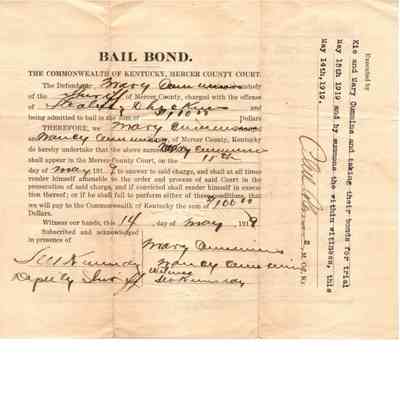 BAIL BOND.
THE COMMONWEALTH OF KENTUCKY, MERCER COUNTY COURT.
The Defendant Mary Cummins custody
of the Sheriff of Mercer County, charged with the offense
of Stealing Chickens and
being admitted to bail in the sum of $100.00 Dollars
THEREFORE, we Mary Cummins
and Nancy Cummins of Mercer County, Kentucky
do hereby undertake that the above named Mary Cummins
shall appear in the Mercer County Court, on the 15th
day of May 1919 to answer to said charge, and shall at all times
render himself amenable to the order and process of said Court in the
prosecution of said charge, and if convicted shall render himself in execu
tion thereof; or if he shall fail to perform either of these conditions, that
we will pay to the Commonwealth of Kentucky the sum of $100.00
Dollars.
Witness our hands, this 14 day of May, 1919
Subscribed and acknowledged
in presence of
Mary Cummins
Nancy Cummins
Witness
Deputy Sheriff
Executed by
Kie and Mary Cummins and taking their bonds for trial
May 15th 1919 and by summons the within witness, this
May 14th, 1919.
M. Co., Ky.